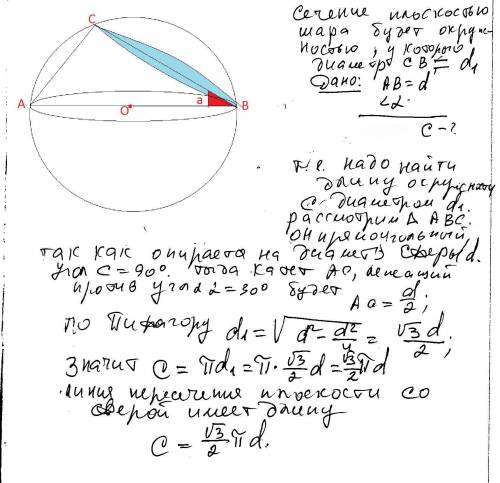 C
A
O
а
B
Сечение плоскостью
шара будет окруж-
ностью, у которого
диаметр CB = d₁
Дано: AB = d
∠α
C - ?
т.е. надо найти
длину окружности
с диаметром d₁.
рассмотрим Δ ABC.
он прямоугольный,
так как опирается на диаметр сферы d.
угол C = 90°. тогда катет AC, лежащий
против угла α = 30° будет
AC = d/2;
по Пифагору d₁ = √(d² - d²/4) = √3d/2;
Значит C = πd₁ = π · √3/2 d = √3/2 πd
линия пересечения плоскости со
сферой имеет длину
C = √3/2 πd.